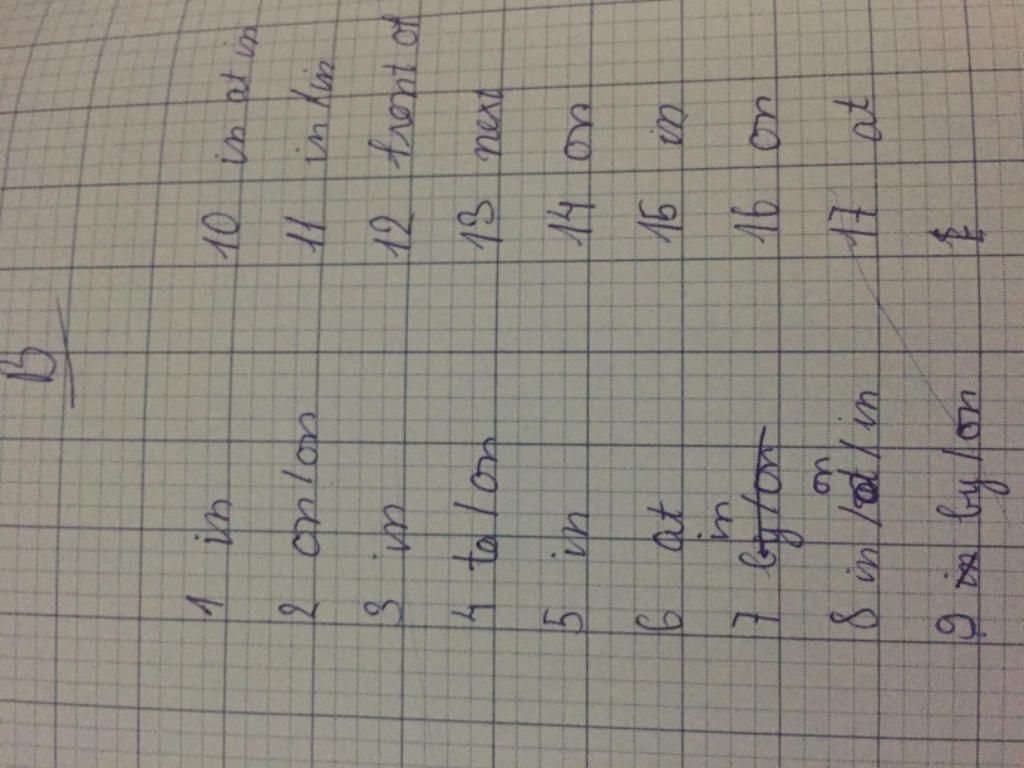 B
1 in
2 on/on
3 in
4 to/on
5 in
6 at
7 in
8 in /on/ in
9 by/on
10 in at in
11 in/in
12 front of
13 next
14 on
15 in
16 on
17 at